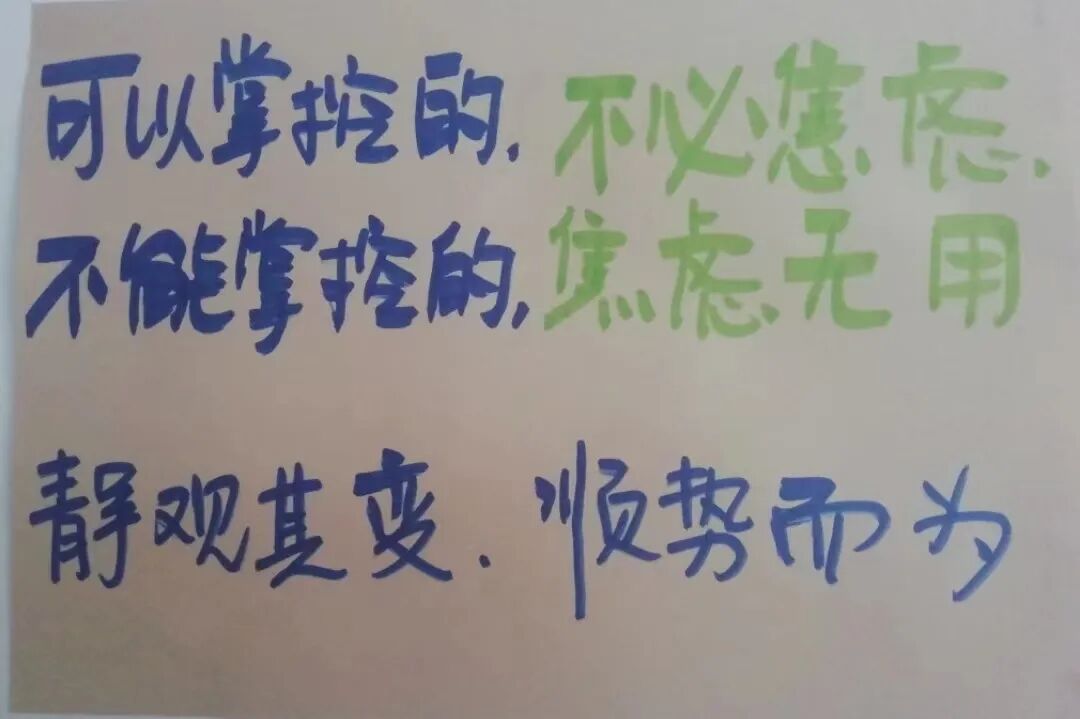 可以掌控的,不必焦虑,
不能掌控的,焦虑无用
静观其变.顺势而为